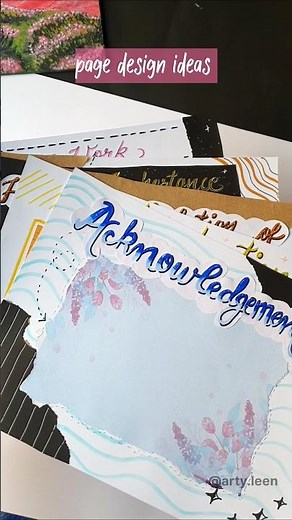 page design ideas
Work
substance
of
Acknowledgemen
@arty.leen